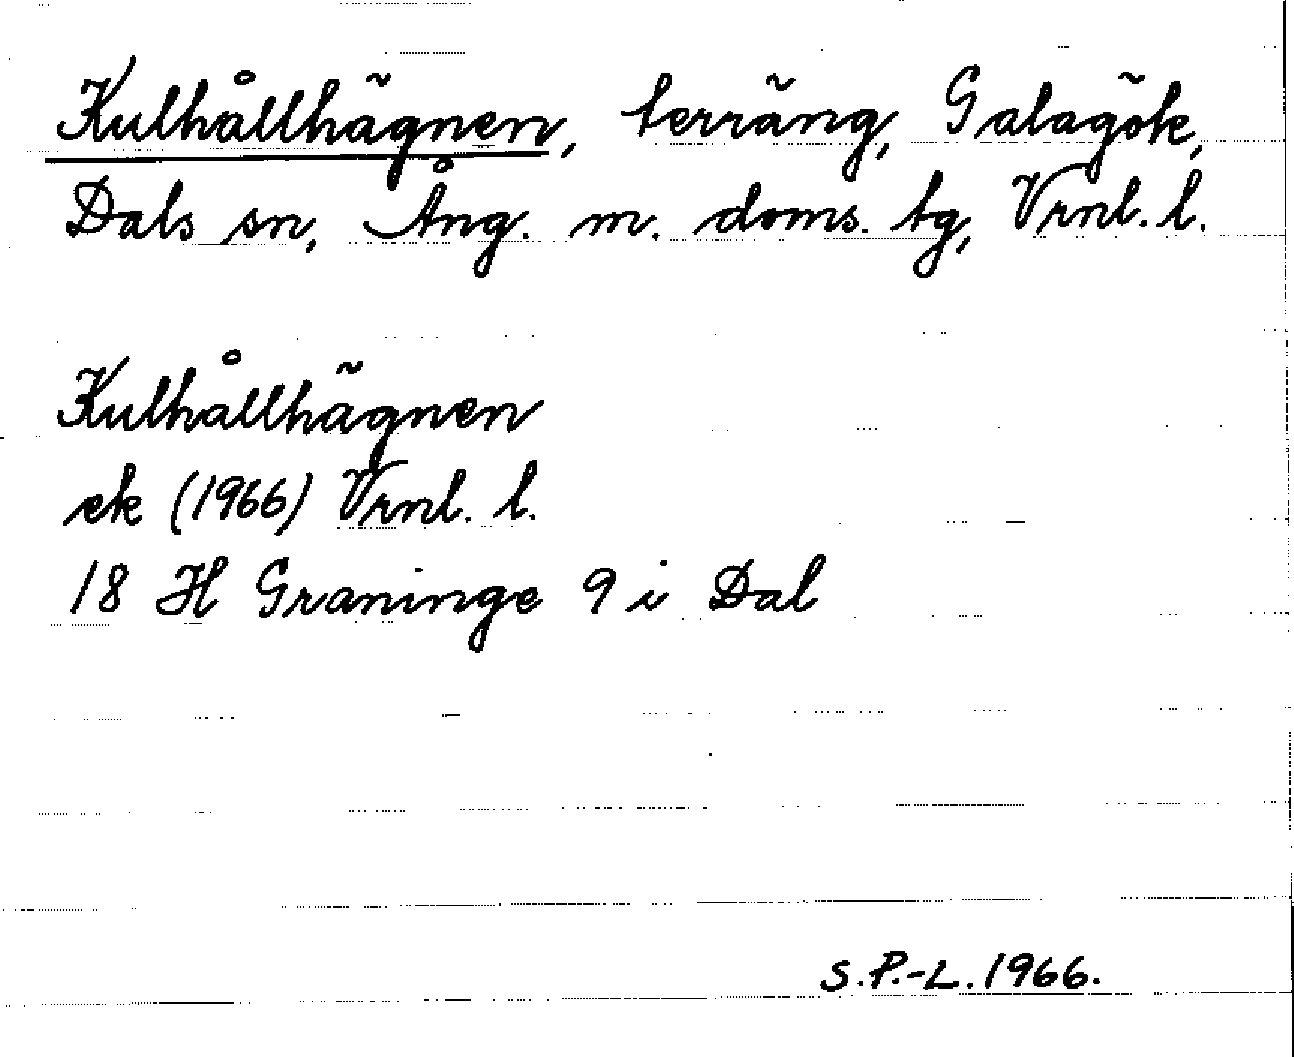 Kulhållhägnen, terräng, Galagöle,
Dals sn, Ång. m. doms. tg, Vrnl. l.
Kulhållhägnen
ek (1966) Vrnl. l.
18 H Graninge 9 i Dal
S.P.-L. 1966.